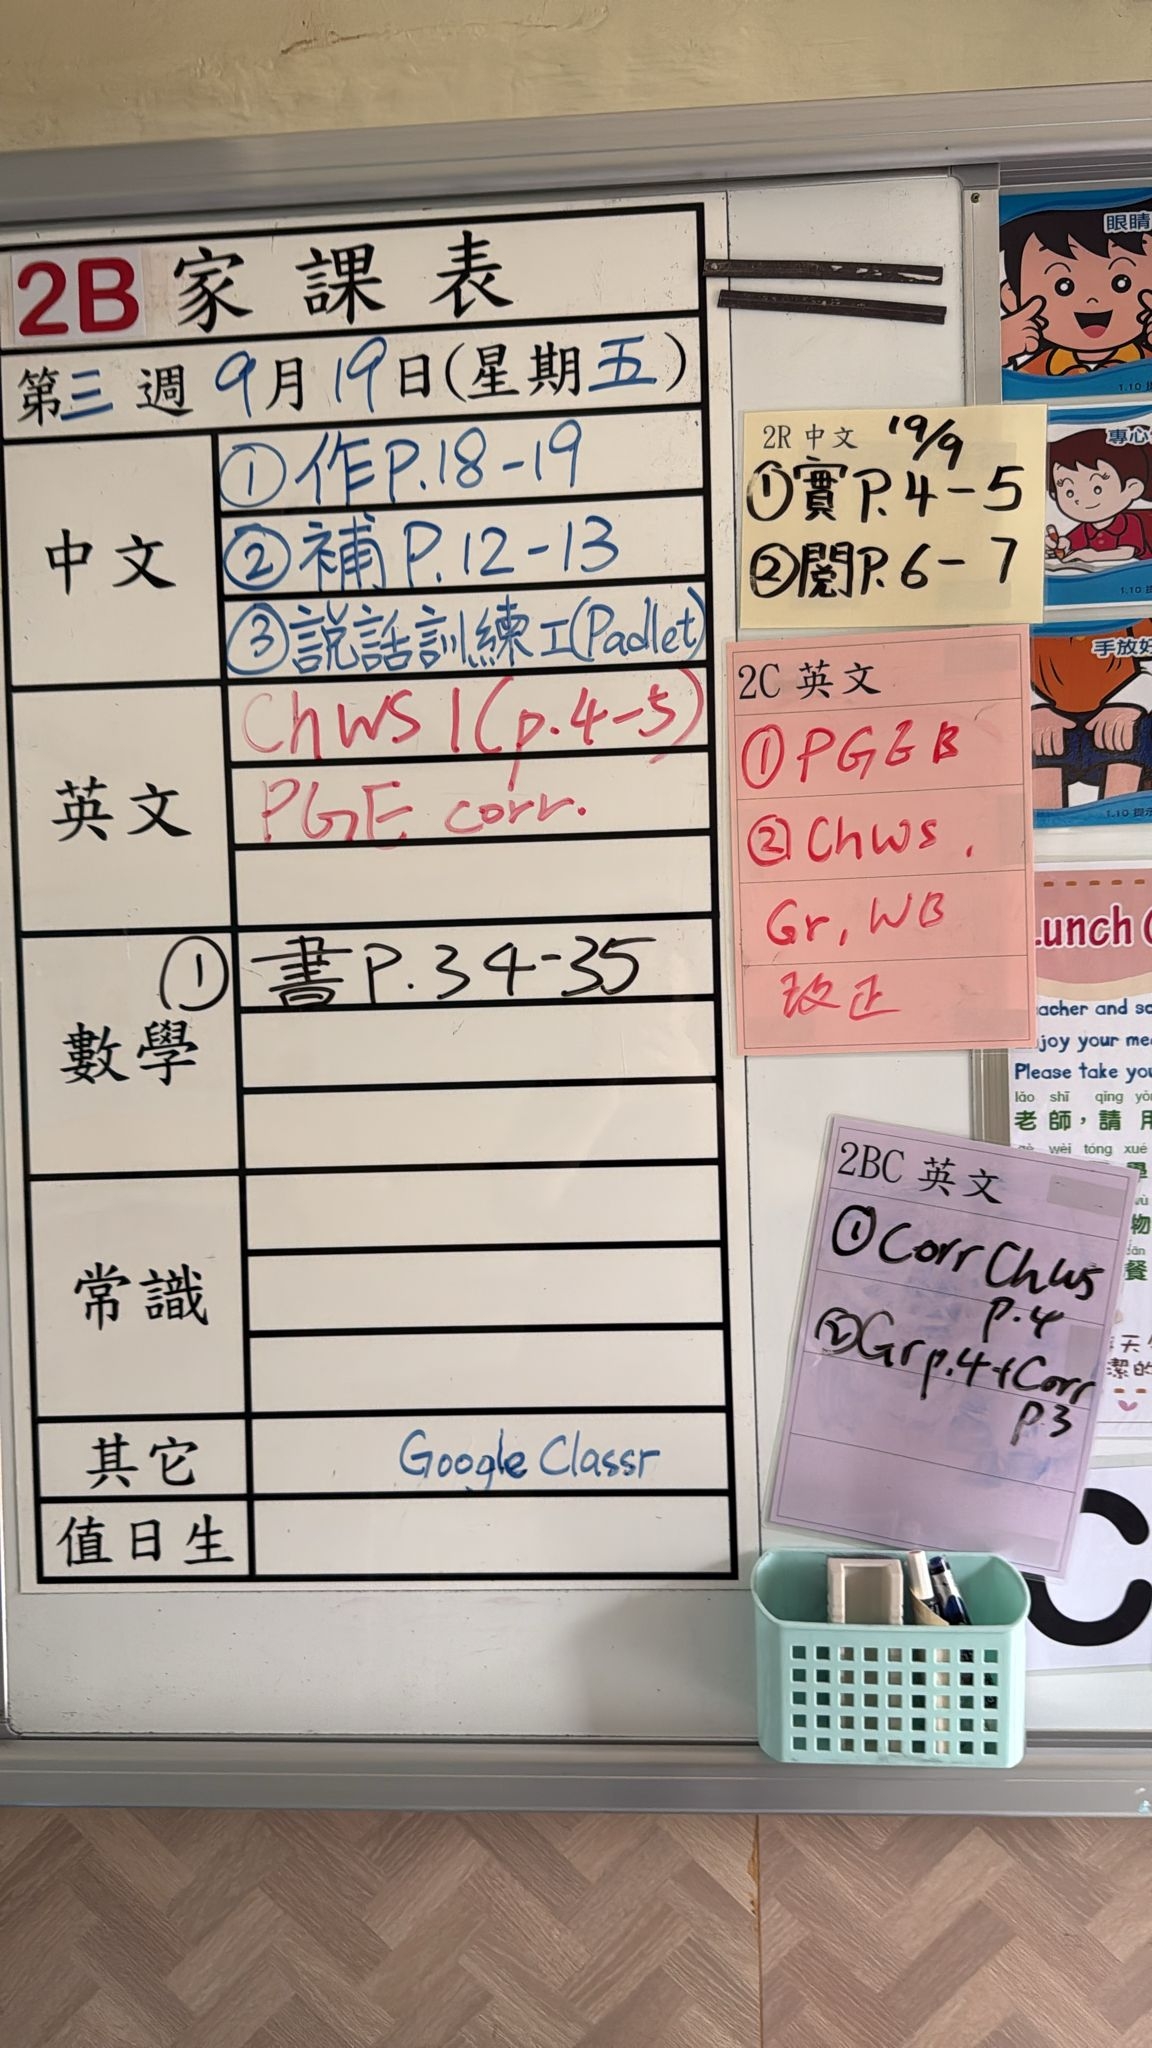 2B 家課表
第三週 9月19日(星期五)
中文
①作P.18-19
②補P.12-13
③説話訓練工(Padlet)
英文
Ch WS 1(p.4-5)
PGE corr.
數學
① 書P.34-35
常識
其它
Google Classr
值日生
2R 中文 19/9
①實P.4-5
②閱P.6-7
2C 英文
①PGEB
②Ch WS,
Gr, WB
改正
2BC 英文
①Corr Ch WS
p.4
②Gr p.4+Corr
p.3
眼睛
1.10
專心
1.10
手放好
1.10
Lunch
and
enjoy your
Please take
lǎo shī qǐng
老師，請用
wèi tóng xué
學
物
餐
天
潔的
C